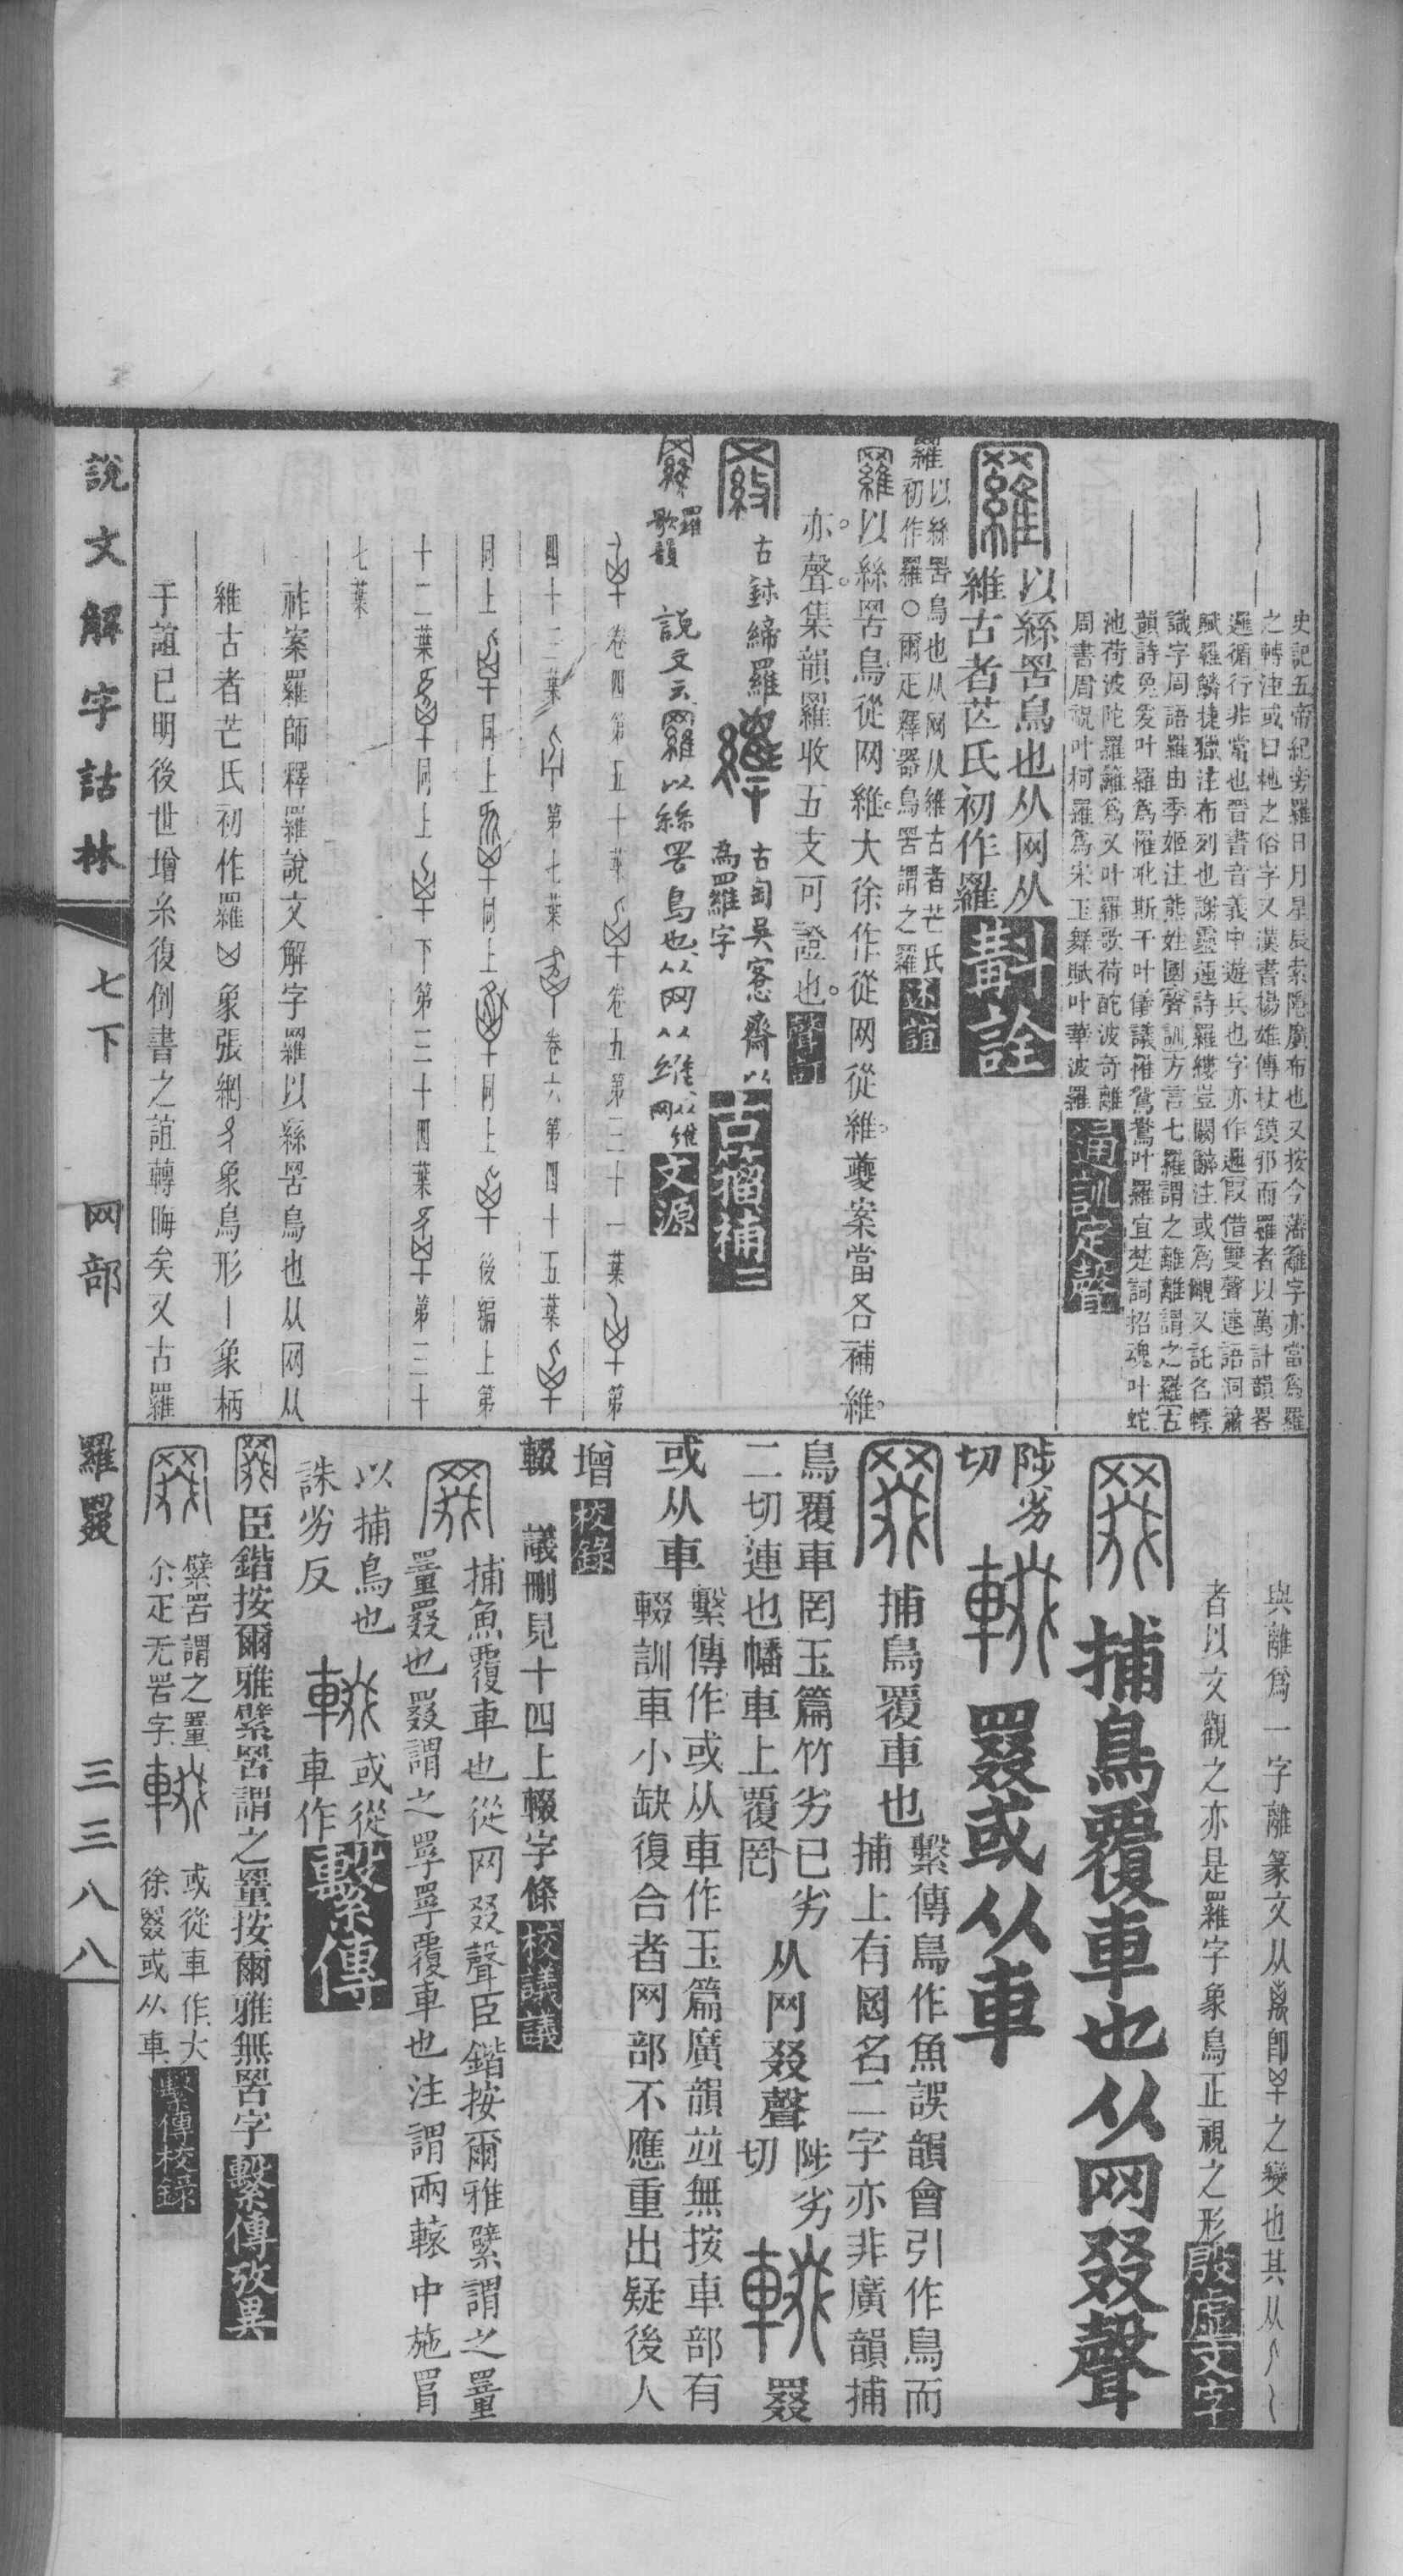 史記五帝紀旁羅日月星辰索隱廣布也又按今藩籬字亦當爲羅
之轉注或曰杝之俗字又漢書楊雄傳杖鏌邪而羅者以萬計韻畧
邏循行非常也晉書音義中遊兵也字亦作邏假借雙聲連語洞簫
賦羅鱗捷獵注布列也謝靈運詩羅縷豈闕辭注或爲覼又託名幖
識字周語羅由季姬注熊姓國聲訓方言七羅謂之離離謂之羅古
韻詩兔爰叶羅爲罹吪斯干叶儀議罹鴛鴦叶羅宜楚詞招魂叶蛇
池荷波陀羅籬爲又叶羅歌荷酡波奇離
周書眉祝叶柯羅爲宋玉舞賦叶華波羅通訓定聲
以絲罟鳥也从网从
維古者芒氏初作羅斠詮
羅以絲罟鳥也从网从維古者芒氏
初作羅○爾疋釋器鳥罟謂之羅述誼
羅以絲罟鳥從网維大徐作從网從維夔案當各補維
亦聲集韻羅收五支可證也聲訂
古鉢締羅
古匋吳愙齋以
爲羅字古籀補二
羅歌韻 說文云羅以絲罟鳥也从网从維从网維文源
卷四第五十葉卷九第三十一葉第
四十三葉第七葉卷六第四十五葉
同上同上同上同上後編上第
十二葉同上下第二十四葉第三十
七葉
祚案羅師釋羅說文解字羅以絲罟鳥也从网从
維古者芒氏初作羅象張網象鳥形丨象柄
于誼已明後世增糸復倒書之誼轉晦矣又古羅
與離爲一字離篆文从离卽之變也其从
者以文觀之亦是羅字象鳥正視之形殷虛文字
捕鳥覆車也从网叕聲
陟劣
切
罬或从車
捕鳥覆車也繫傳鳥作魚誤韻會引作鳥而
捕上有罔名二字亦非廣韻捕
鳥覆車罔玉篇竹劣已劣从网叕聲陟劣
二切連也幡車上覆罔切罬
或从車繫傳作或从車作玉篇廣韻竝無按車部有
輟訓車小缺復合者网部不應重出疑後人
增校錄
輟 議刪見十四上輟字條校議議
捕魚覆車也從网叕聲臣鍇按爾雅繴謂之罿
罿罬也罬謂之罦罦覆車也注謂兩轅中施罥
以捕鳥也
誅劣反
或從
車作繫傳
臣鍇按爾雅繴罟謂之罿按爾雅無罟字繫傳攷異
繴罟謂之罿
尒疋无罟字
或從車作大
徐罬或从車繫傳校錄
說文解字詁林 七下 网部 羅罬 三三八八